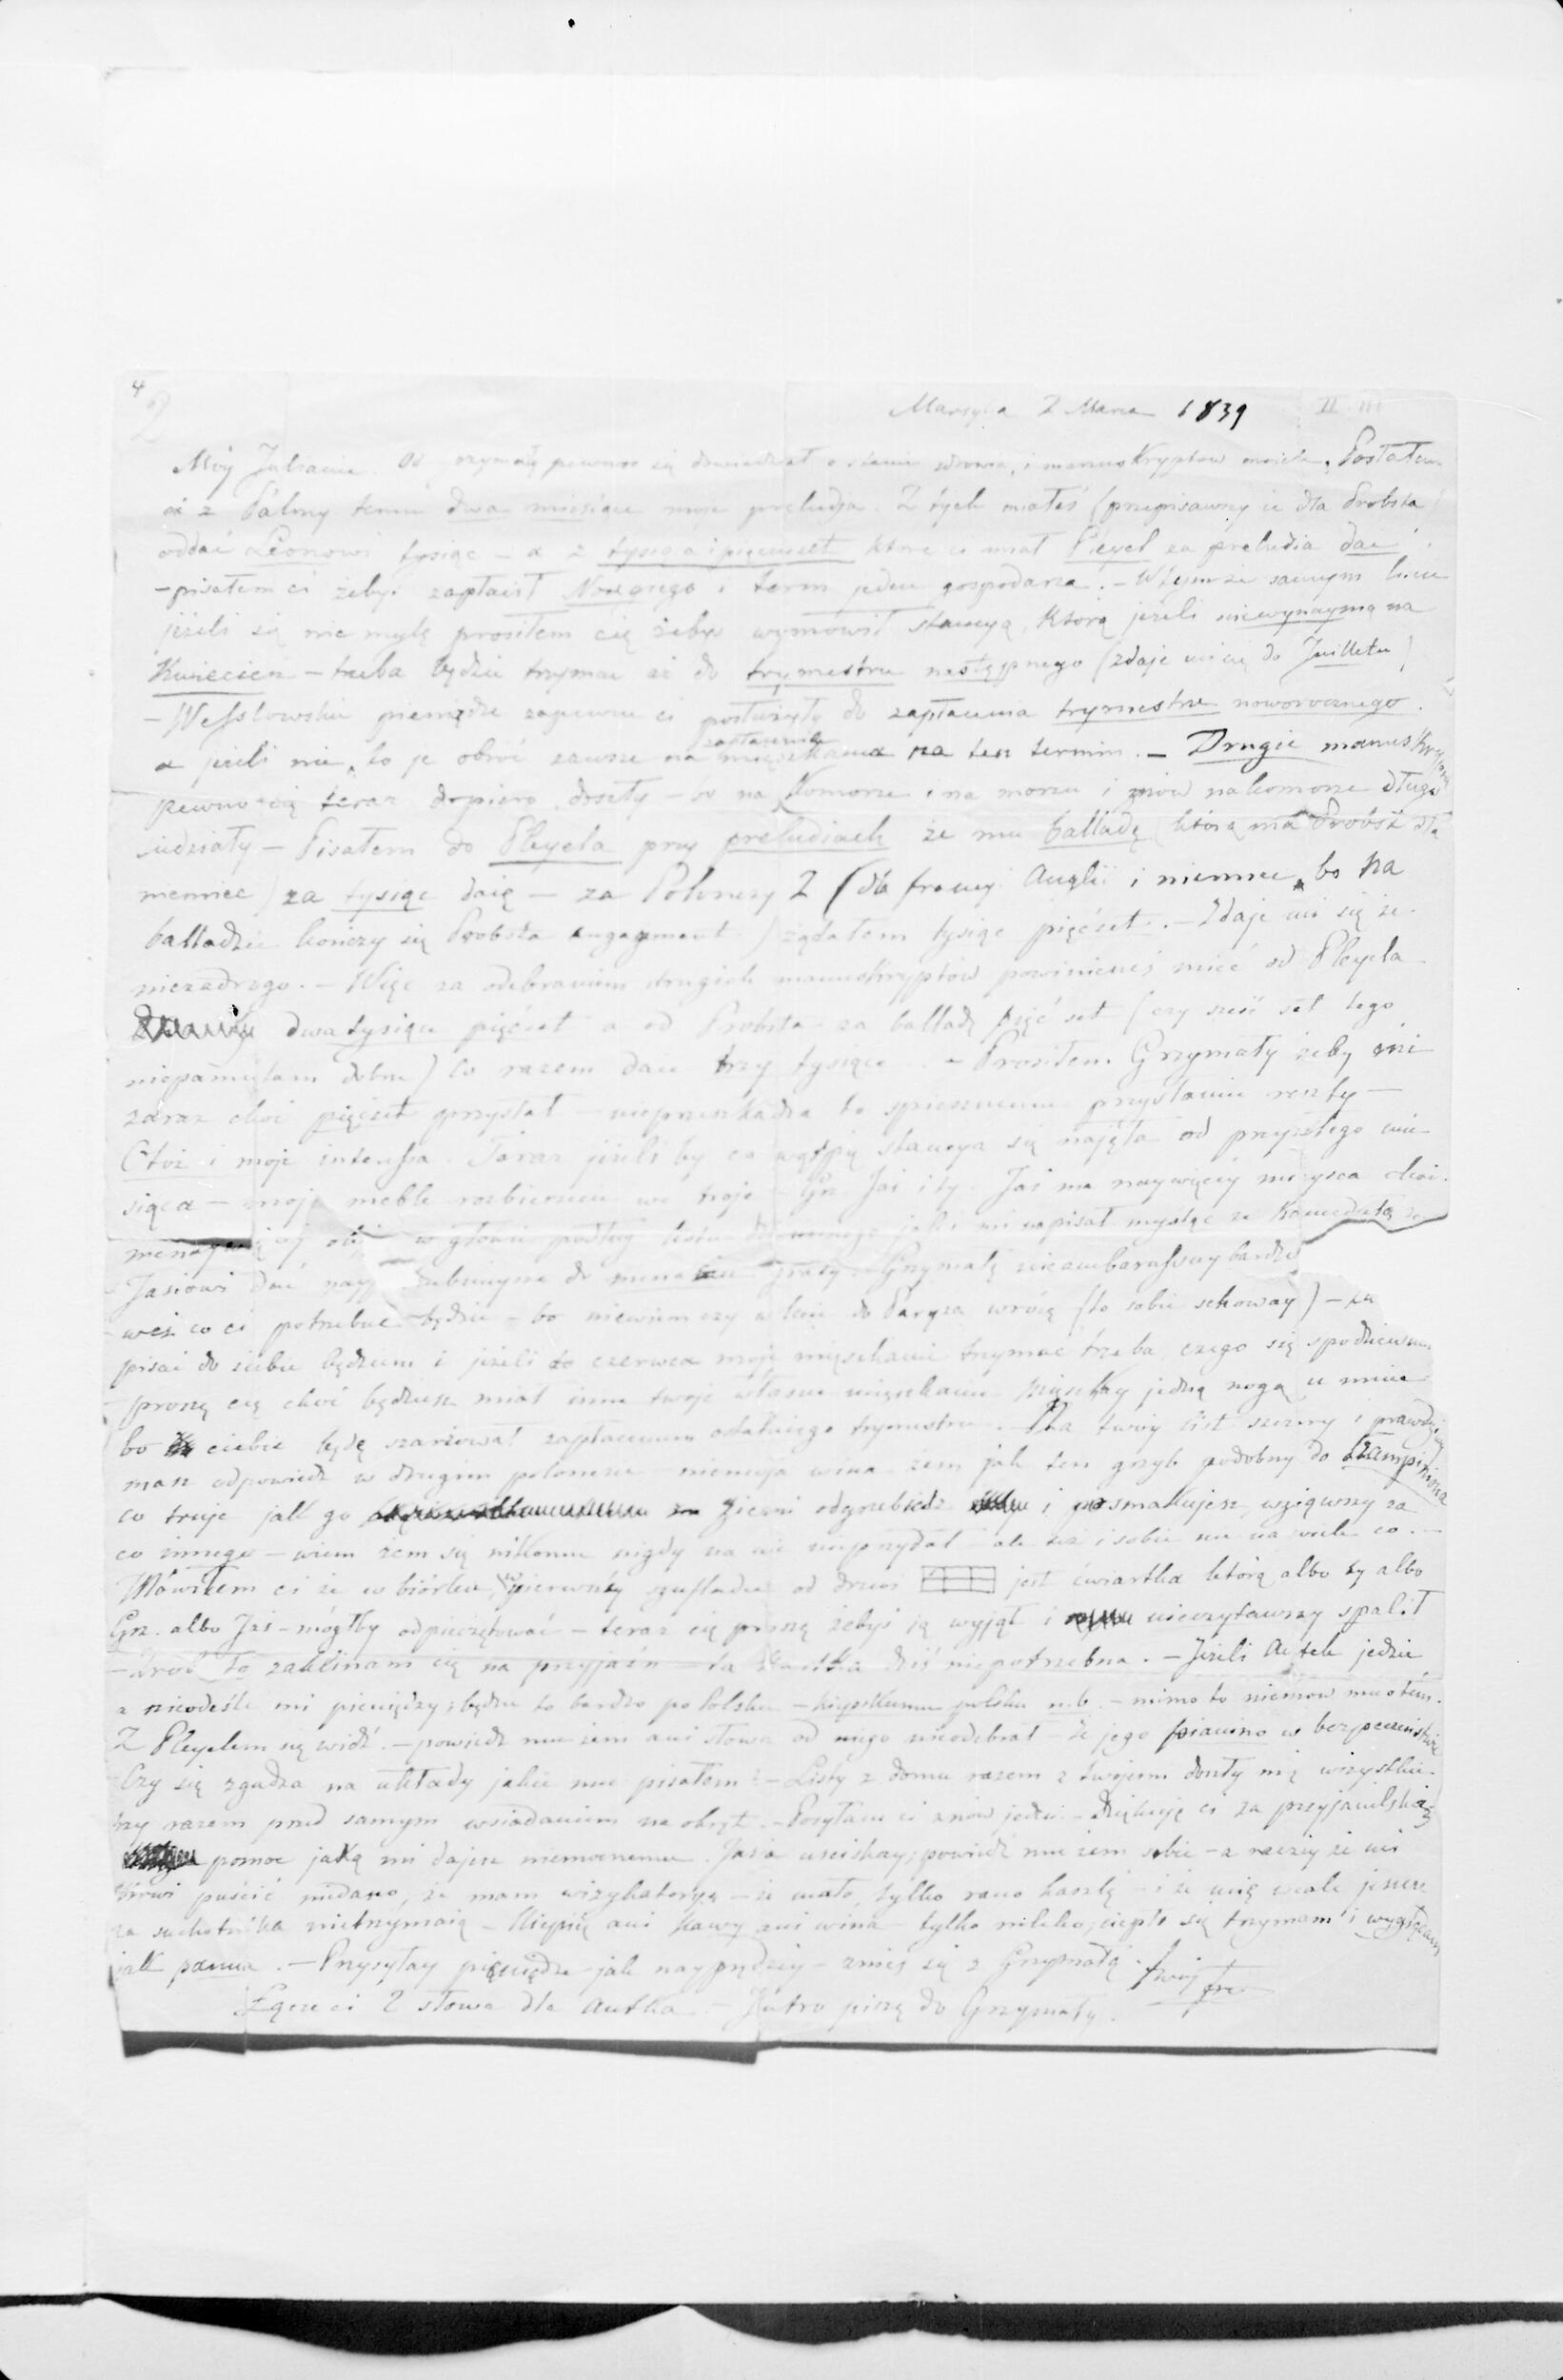 4
2
Marsylia 2 Marca 1839
II · III
Mój Julianie. Od Grzymały pewnoś się dowiedział o stanie zdrowia, i manuskryptów moich. Posłałem
ci z Palmy temu dwa miesiące moje preludja. Z tych miałeś (przepisawszy je dla Probsta)
oddać Leonowi tysiąc – a z tysiąca i pięciuset które ci miał Pleyel za preludia dać
– pisałem ci żebyś zapłacił Nougiego i term jeden gospodarza. – W tymże samym liście
jeżeli się nie mylę prosiłem cię żebyś wymówił stancyą, którą jeżeli niewynaymą na
Kwiecień – trzeba będzie trzymać aż do trymestru następnego (zdaje mi się do Juilletu)
– Wessłowskie pieniądze zapewne ci posłużyły do zapłacenia trymestru noworocznego.
a jeżeli nie, to je obróć zawsze na zapłacenie mięszkania na ten termin. – Drugie manuskrypta
pewno cię teraz dopiero doszły – bo na komorze i na morzu i znów na komorze długo
siedziały – Pisałem do Pleyela przy preludiach że mu balladę (którą ma Probst dla
niemiec) za tysiąc daię – za Polonezy 2 (dla francyi Anglii i niemiec, bo na
balladzie kończy się Probsta engagement) żądałem tysiąc pięćset. – Zdaje mi się że
niezadrogo. – Więc za odebraniem drugich manuskryptów powinieneś mieć od Pleyela
dwa tysiące pięćset a od Probsta za balladę pięć set (czy sześć set tego
niepamiętam dobrze) co razem daie trzy tysiące. – Prosiłem Grzymały żeby mi
zaraz choć pięćset przysłał – nieprzeszkadza to spiesznemu przysłaniu reszty –
Otóż i moje interessa. Teraz jeżeli by co wątpię stancya się najęła od przyszłego mie-
siąca – moje meble rozbierzcie we troje – Grz Jaś i ty. Jaś ma naywięcéy mieysca choć
w głowie podług listu jaki mi napisał myśląc że Kamedułą
Jasiowi dać Grzymałę nieambarassuy bardzo
weź co ci potrzebne będzie – bo niewiem czy w lecie do Paryża wrócę (to sobie schoway) –
pisać do siebie będziem i jeżeli do czerwca moje mięszkanie trzymać trzeba, czego się spodziewam
proszę cię choć będziesz miał inne twoje własne mięszkanie mięszkay jedną nogą u mnie
bo ciebie będę szarżował zapłaceniem ostatniego trymestru. – Na twóy list szczery i prawdziwy
masz odpowiedź w drugim polonezie niemoja wina żem jak ten grzyb podobny do szampiniona
co truje jak go z ziemi odgrzebiesz i posmakujesz, wziąwszy za
co innego – wiem żem się nikomu nigdy na nic nieprzydał – ale też i sobie nie na wiele co. –
Mówiłem ci że w biórku, w pierwszey szufladzie od drzwi jest ćwiartka którą albo ty albo
Grz. albo Jaś – mógłby odpieczętować – teraz cię proszę żebyś ją wyjął i nieczytawszy spalił
– zrób to zaklinam cię na przyjaźń – ta kartka dziś niepotrzebna. – Jeżeli Antek jedzie
a nieodeśle mi pieniędzy; będzie to bardzo po Polsku – mimo to niemów mu o tém.
Z Pleyelem się widź. – powiedz mu żem ani słowa od niego nieodebrał – że jego pianino w bezpieczeństwie
Czy się zgadza na układy jakie mu pisałem? – Listy z domu razem z twojemi doszły mię wszystkie
trzy razem przed samym wsiadaniem na okręt. – Posyłam ci znów jeden. – Dziękuję ci za przyjacielską
pomoc jaką mi dajesz niemocnemu. Jasia uściskay; powiedz mu żem sobie – a raczéy że mi
krwi puścić niedano, że mam wizykatoryą – że mało, tylko rano kaszlę – i że mię wcale jeszcze
za suchotnika nietrzymaią – Niepiję ani kawy ani wina tylko mleko; ciepło się trzymam i wyglądam
jak panna. – Przysyłay pieniądze jak nayprędzéy – znieś się z Grzymałą. twój fre
Łączę ci 2 słowa dla Antka – Jutro piszę do Grzymały.